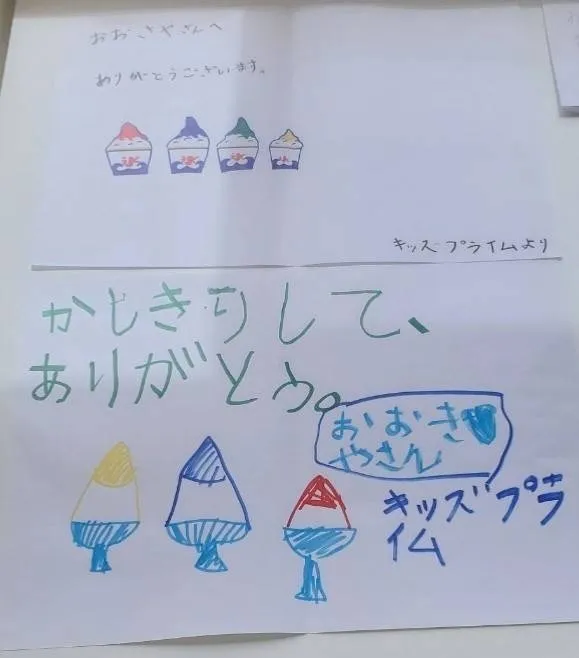 おおきやさんへ
ありがとうございます。
氷 氷 氷 氷
キッズプライムより
かしきりして、
ありがとう。
おおき♥
やさん
キッズプラ
イム